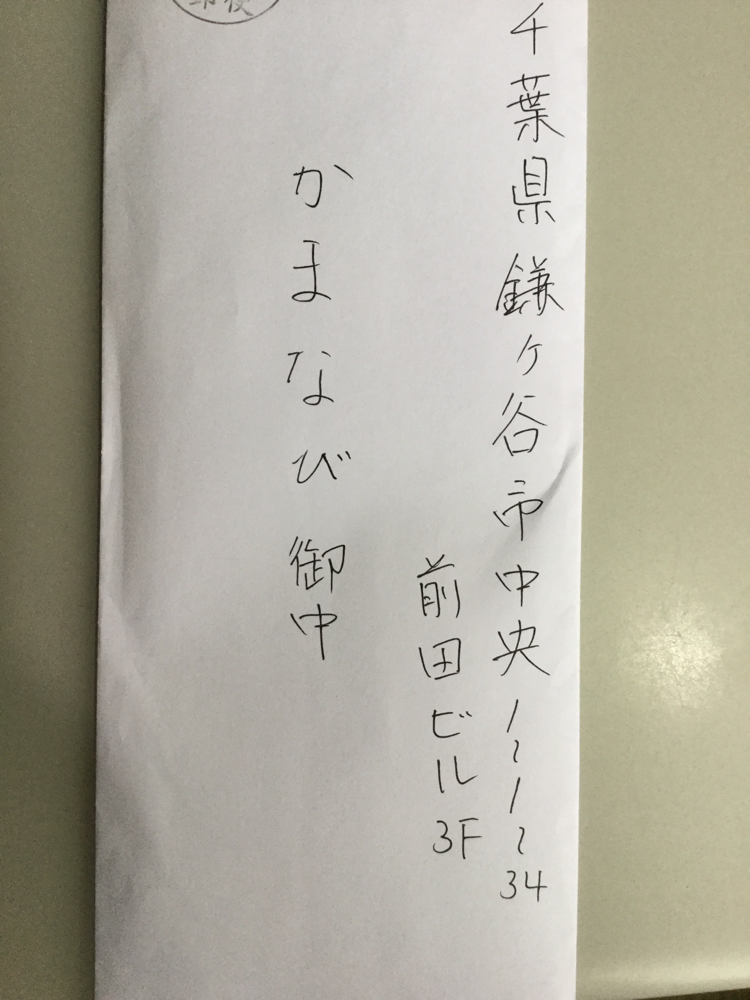 千葉県鎌ヶ谷市中央1~1~34
前田ビル3F
かまなび御中